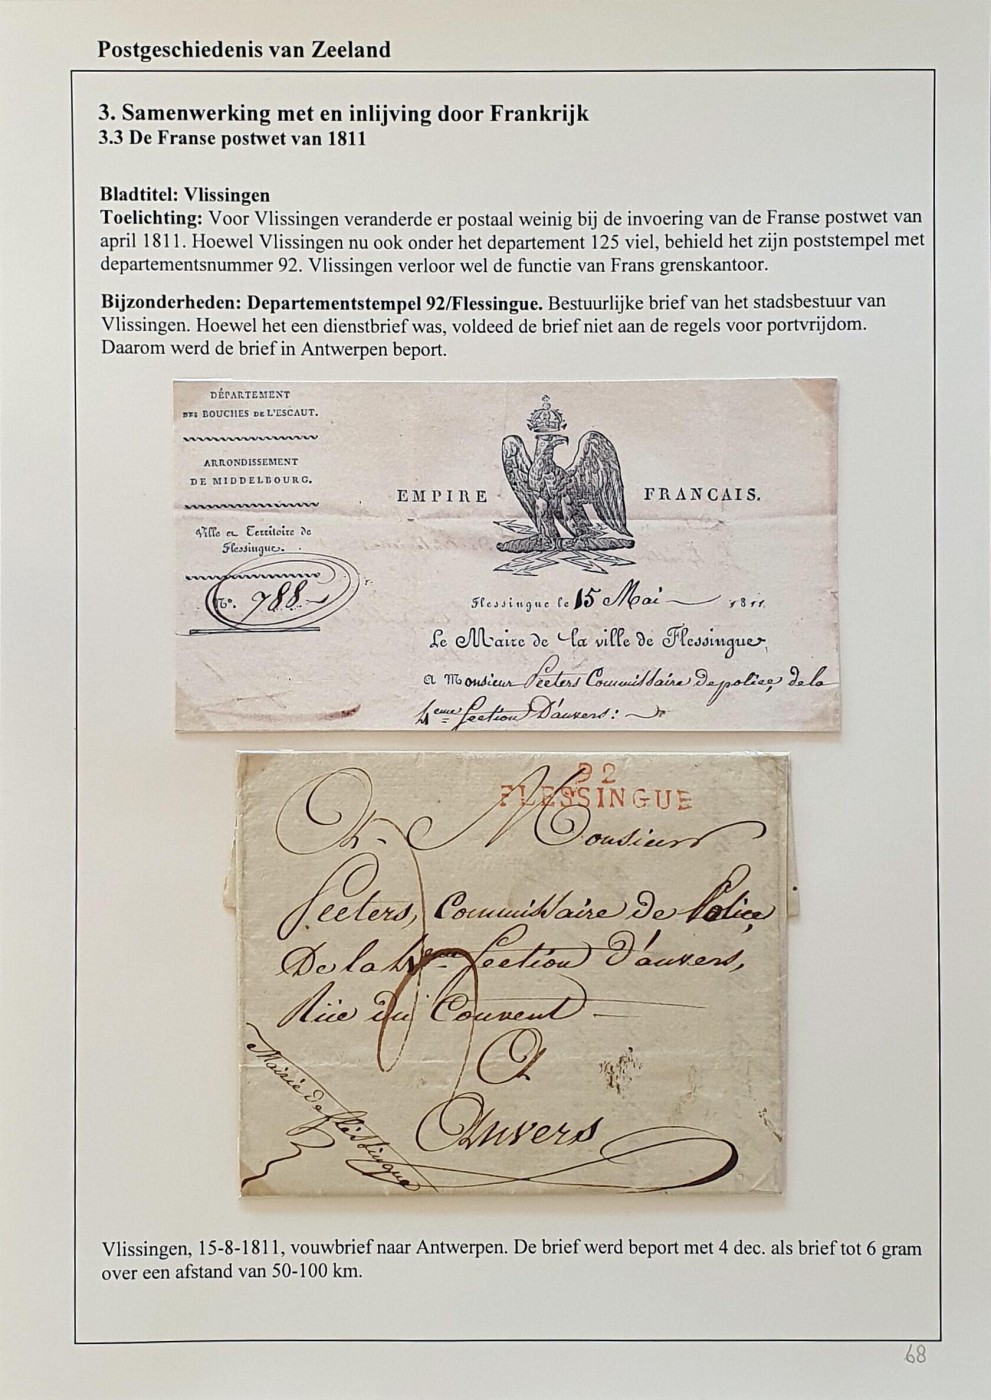 Postgeschiedenis van Zeeland
3. Samenwerking met en inlijving door Frankrijk
3.3 De Franse postwet van 1811
Bladtitel: Vlissingen
Toelichting: Voor Vlissingen veranderde er postaal weinig bij de invoering van de Franse postwet van
april 1811. Hoewel Vlissingen nu ook onder het departement 125 viel, behield het zijn poststempel met
departementsnummer 92. Vlissingen verloor wel de functie van Frans grenskantoor.
Bijzonderheden: Departementstempel 92/Flessingue. Bestuurlijke brief van het stadsbestuur van
Vlissingen. Hoewel het een dienstbrief was, voldeed de brief niet aan de regels voor portvrijdom.
Daarom werd de brief in Antwerpen beport.
DÉPARTEMENT
DES BOUCHES DE L'ESCAUT.
ARRONDISSEMENT
DE MIDDELBOURG.
Ville et Territoire de
Flessingue.
N°. 788
EMPIRE FRANCAIS.
Flessingue le 15 Mai 1811.
Le Maire de la ville de Flessingue,
A Monsieur Peeters Commissaire de police, de la
4eme Section D'anvers:
92
FLESSINGUE
A Monsieur
Peeters, Commissaire de Police,
De la 4eme Section D'anvers,
Rüe du Couvent
A
Anvers
Mairie de flessingue
Vlissingen, 15-8-1811, vouwbrief naar Antwerpen. De brief werd beport met 4 dec. als brief tot 6 gram
over een afstand van 50-100 km.
68